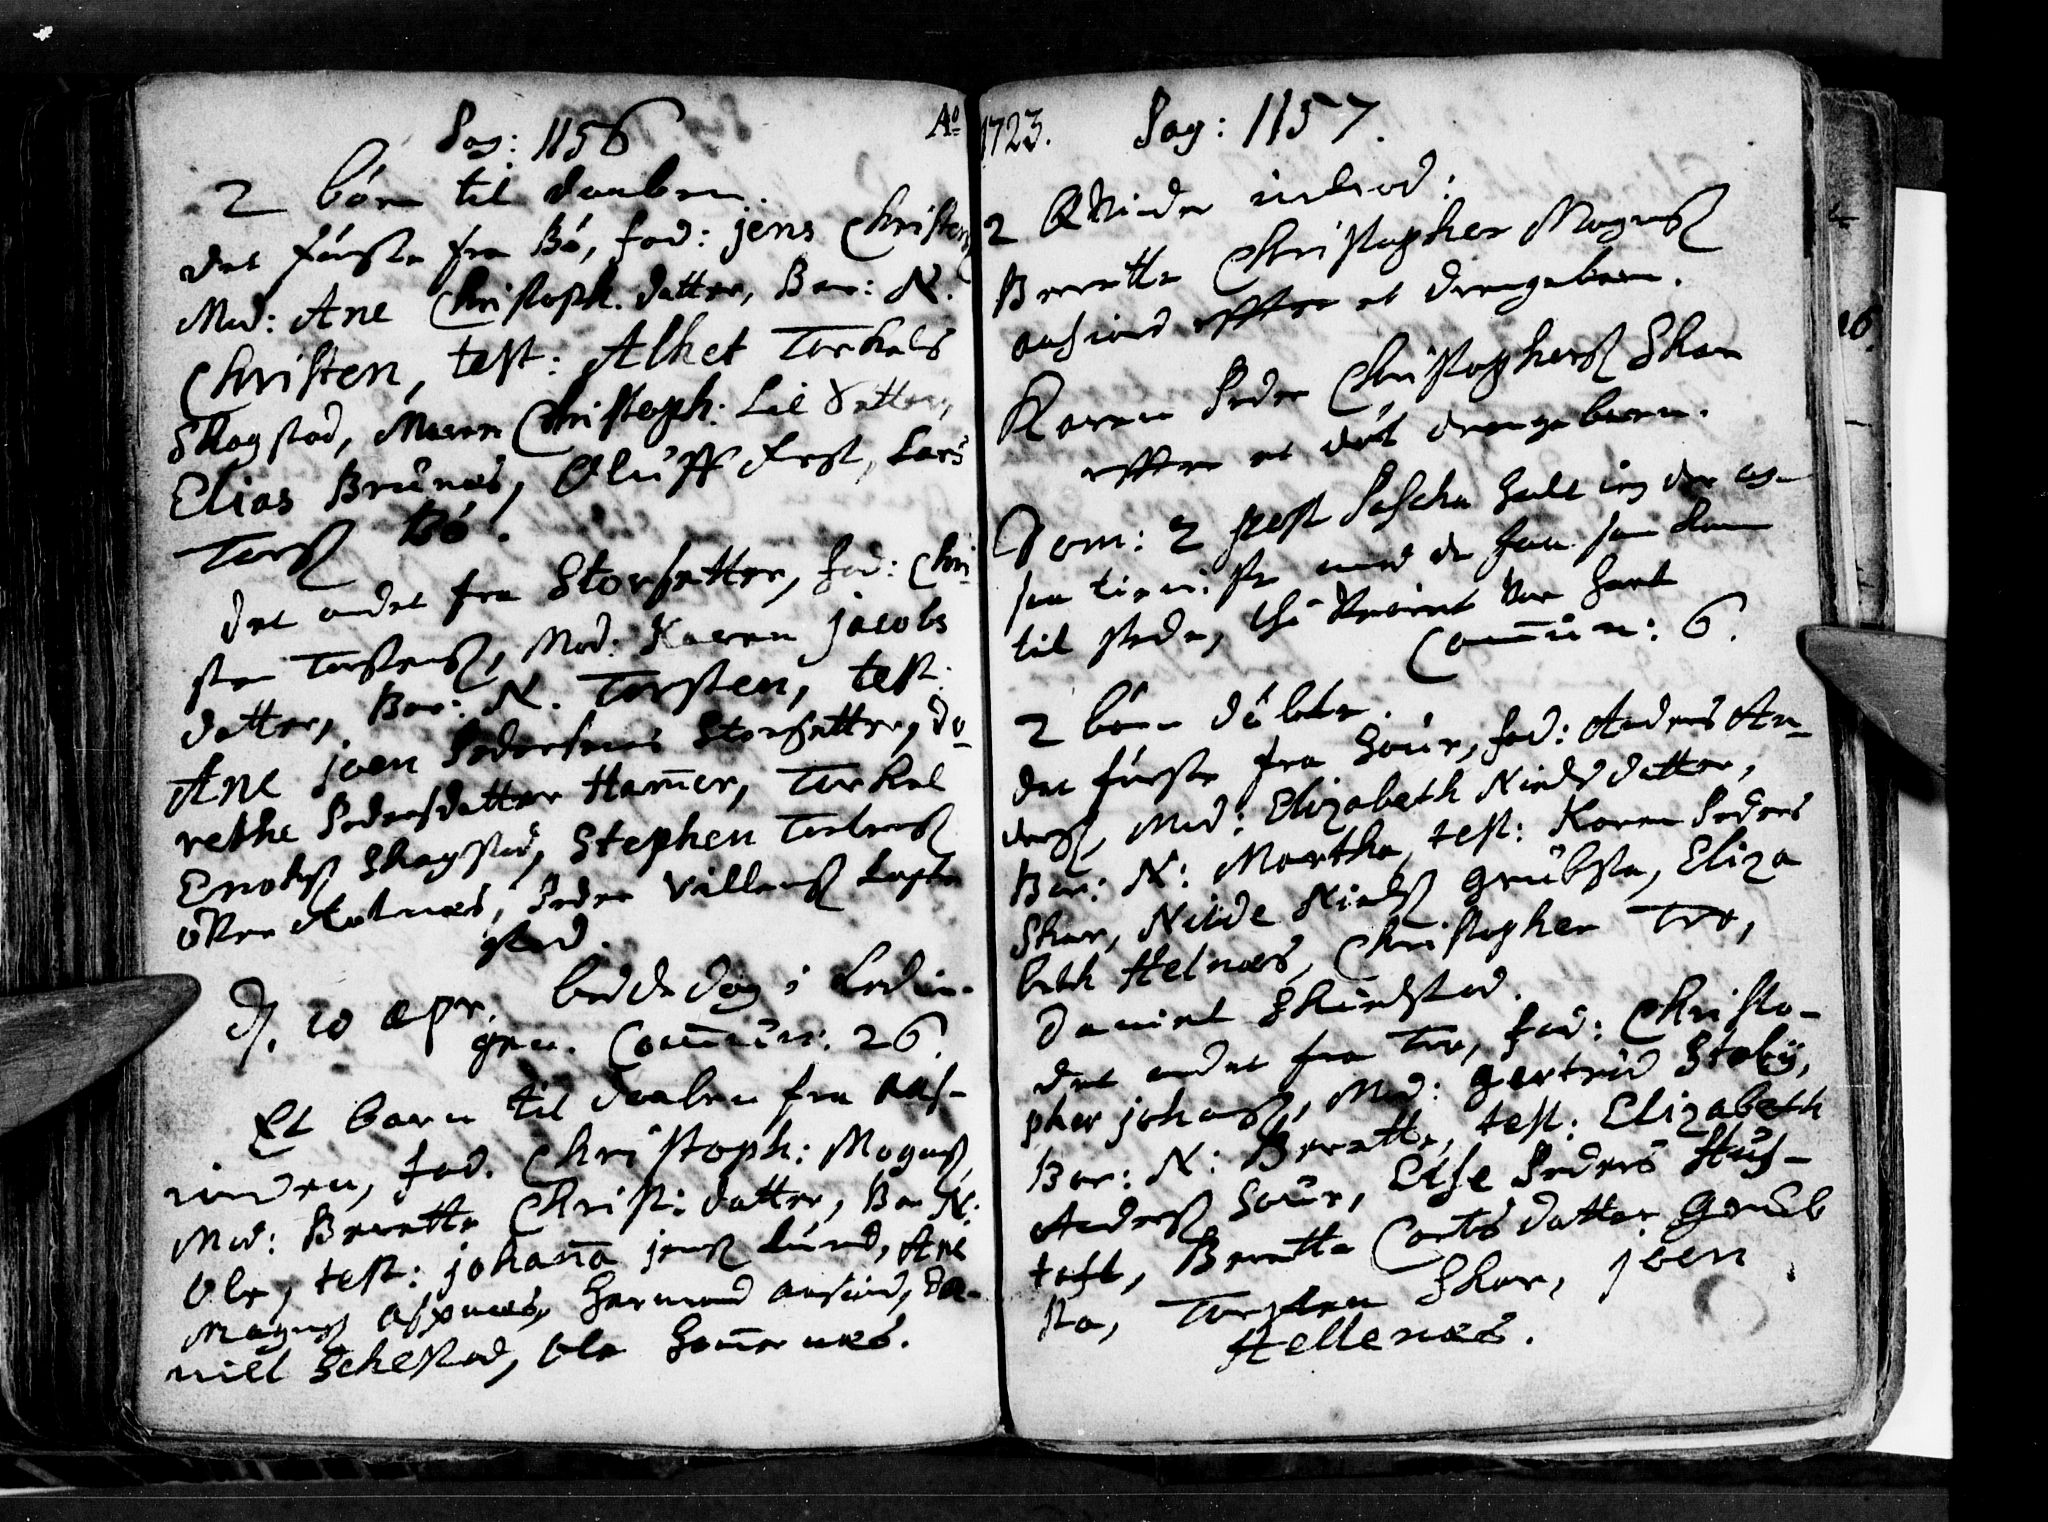 Pag: 1156
Aō
2 börn til daaben.
det förste fra Bö, fad: jens Christens
Mod: Ane Christoph. datter, Bar: N.
Christen, test: Alhet Torkels
Skagstad, Maren Christoph: Lil datter,
Elias Brunæs, Oluff frost, Lars
Torß Bö.
det andet fra Storsetter, fad: Chri-
sten Torstenß, Mod: Karen jacobs
datter, Bar: N. Torsten, test:
Ane joen Pedersens Storsetter, do-
rethe Pedersdatter Ham̄er, Torkel
Enokß Skagstad, Stephen
Kolnæs, Peder Villumß
stad.
d. 20 apr. beddedag i Lødin-
gen. Com̄un: 26.
Et barn til daaben fra
inden, fad. Christoph: Mognß,
Mod: Beretta Christ: datter, Bar N:
Ole, test: johan̄a jenß Lund, Ane
Magnß næs, Hermand, da-
niel Schestad, Ole Ham̄ernæs.
1723. Pag: 1157.
2 Qvinder inleed:
Beretta Christopher Mognß
effter et drengebarn.
Karen Peder Christopherß Skar
effter et döt drengebarn.
Dom: 2 post Pascha
som
til stede, thi Veiret var hart
Com̄un: 6.
2 börn döbte.
det förste fra Sour, fad: Anders An-
derß, Mod: Elizabeth Nielsdatter,
Bar: N: Martha, test: Karen Peders
Skar, Nilde Nielß Grubsta, Eliza
beth Helnæs, Christopher Tro,
Daniel Skielstad.
det andet fra Tro, fad: Christo-
pher johanß, Mod: Gertrud Stoby,
Bar: N: Beretta, test: Elizabeth
Anderß Sour, Else Peders Hus-
toft, Beretta Cortsdatter Grub
sta, Torsten Skar, joen
Hellenæs.